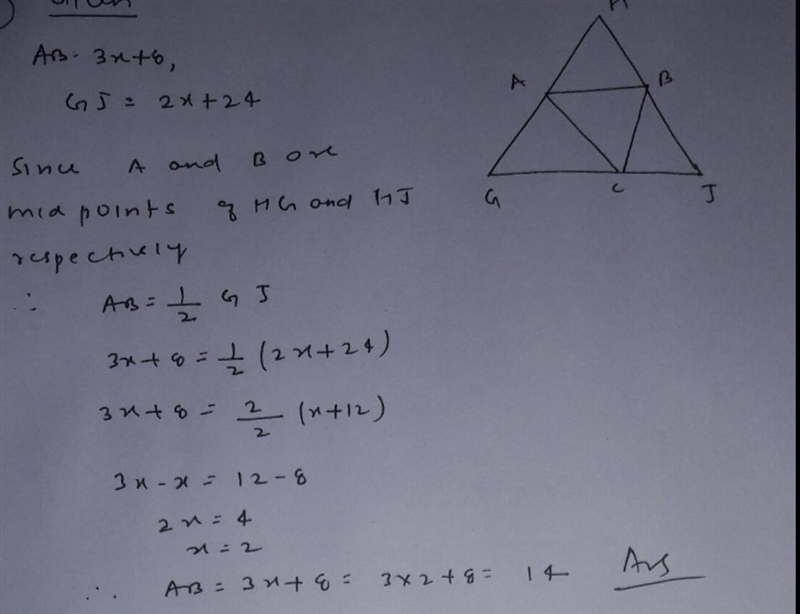 Given
AB = 3x+8,
GJ = 2x+24
Since A and B are
mid points of HG and HJ
respectively
∴ AB = 1/2 GJ
3x+8 = 1/2 (2x+24)
3x+8 = 2/2 (x+12)
3x-x = 12-8
2x = 4
x = 2
∴ AB = 3x+8 = 3x2+8 = 14 Ans
H
A B
G C J